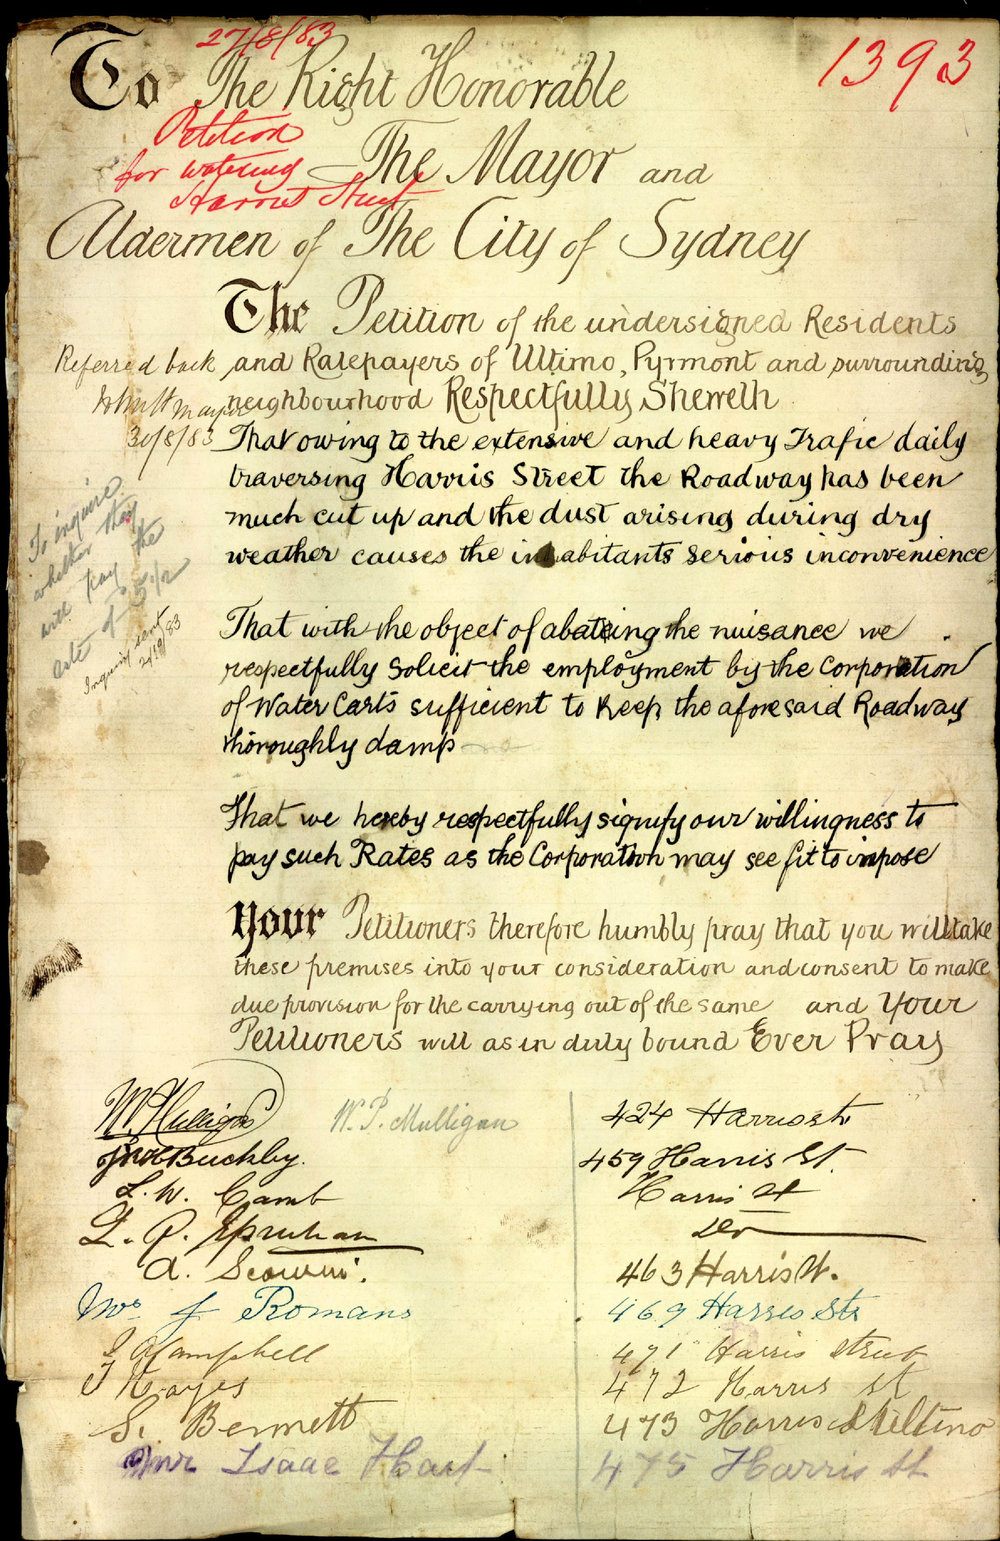 27/8/83
1393
To The Right Honorable
Petition
for watering
Harris Street
The Mayor and
Aldermen of The City of Sydney
The Petition of the undersigned Residents
and Ratepayers of Ultimo, Pyrmont and surrounding
neighbourhood Respectfully Sheweth
Referred back
Mayor
30/8/83
That owing to the extensive and heavy Trafic daily
traversing Harris Street the Roadway has been
much cut up and the dust arising during dry
weather causes the inhabitants serious inconvenience
To inquire
whether they
will pay the
rate of 5 1/2
Inquiry sent
That with the object of abateing the nuisance we
respectfully solicit the employment by the Corporation
of Water Carts sufficient to keep the aforesaid Roadway
thoroughly damp
That we hereby respectfully signify our willingness to
pay such Rates as the Corporation may see fit to impose
Your Petitioners therefore humbly pray that you will take
these premises into your consideration and consent to make
due provision for the carrying out of the same and Your
Petitioners will as in duty bound Ever Pray
W. P. Mulligan W. P. Mulligan 424 Harris st
Buckby. 459 Harris St.
L. W. Camb Harris St
Do
A. 463 Harris St.
Mrs J Romans 469 Harris Str
J Campbell 471 Harris Street
T Hayes 472 Harris St
S. Bennett 473 Harris St Ultimo
Isaac Hart 475 Harris St